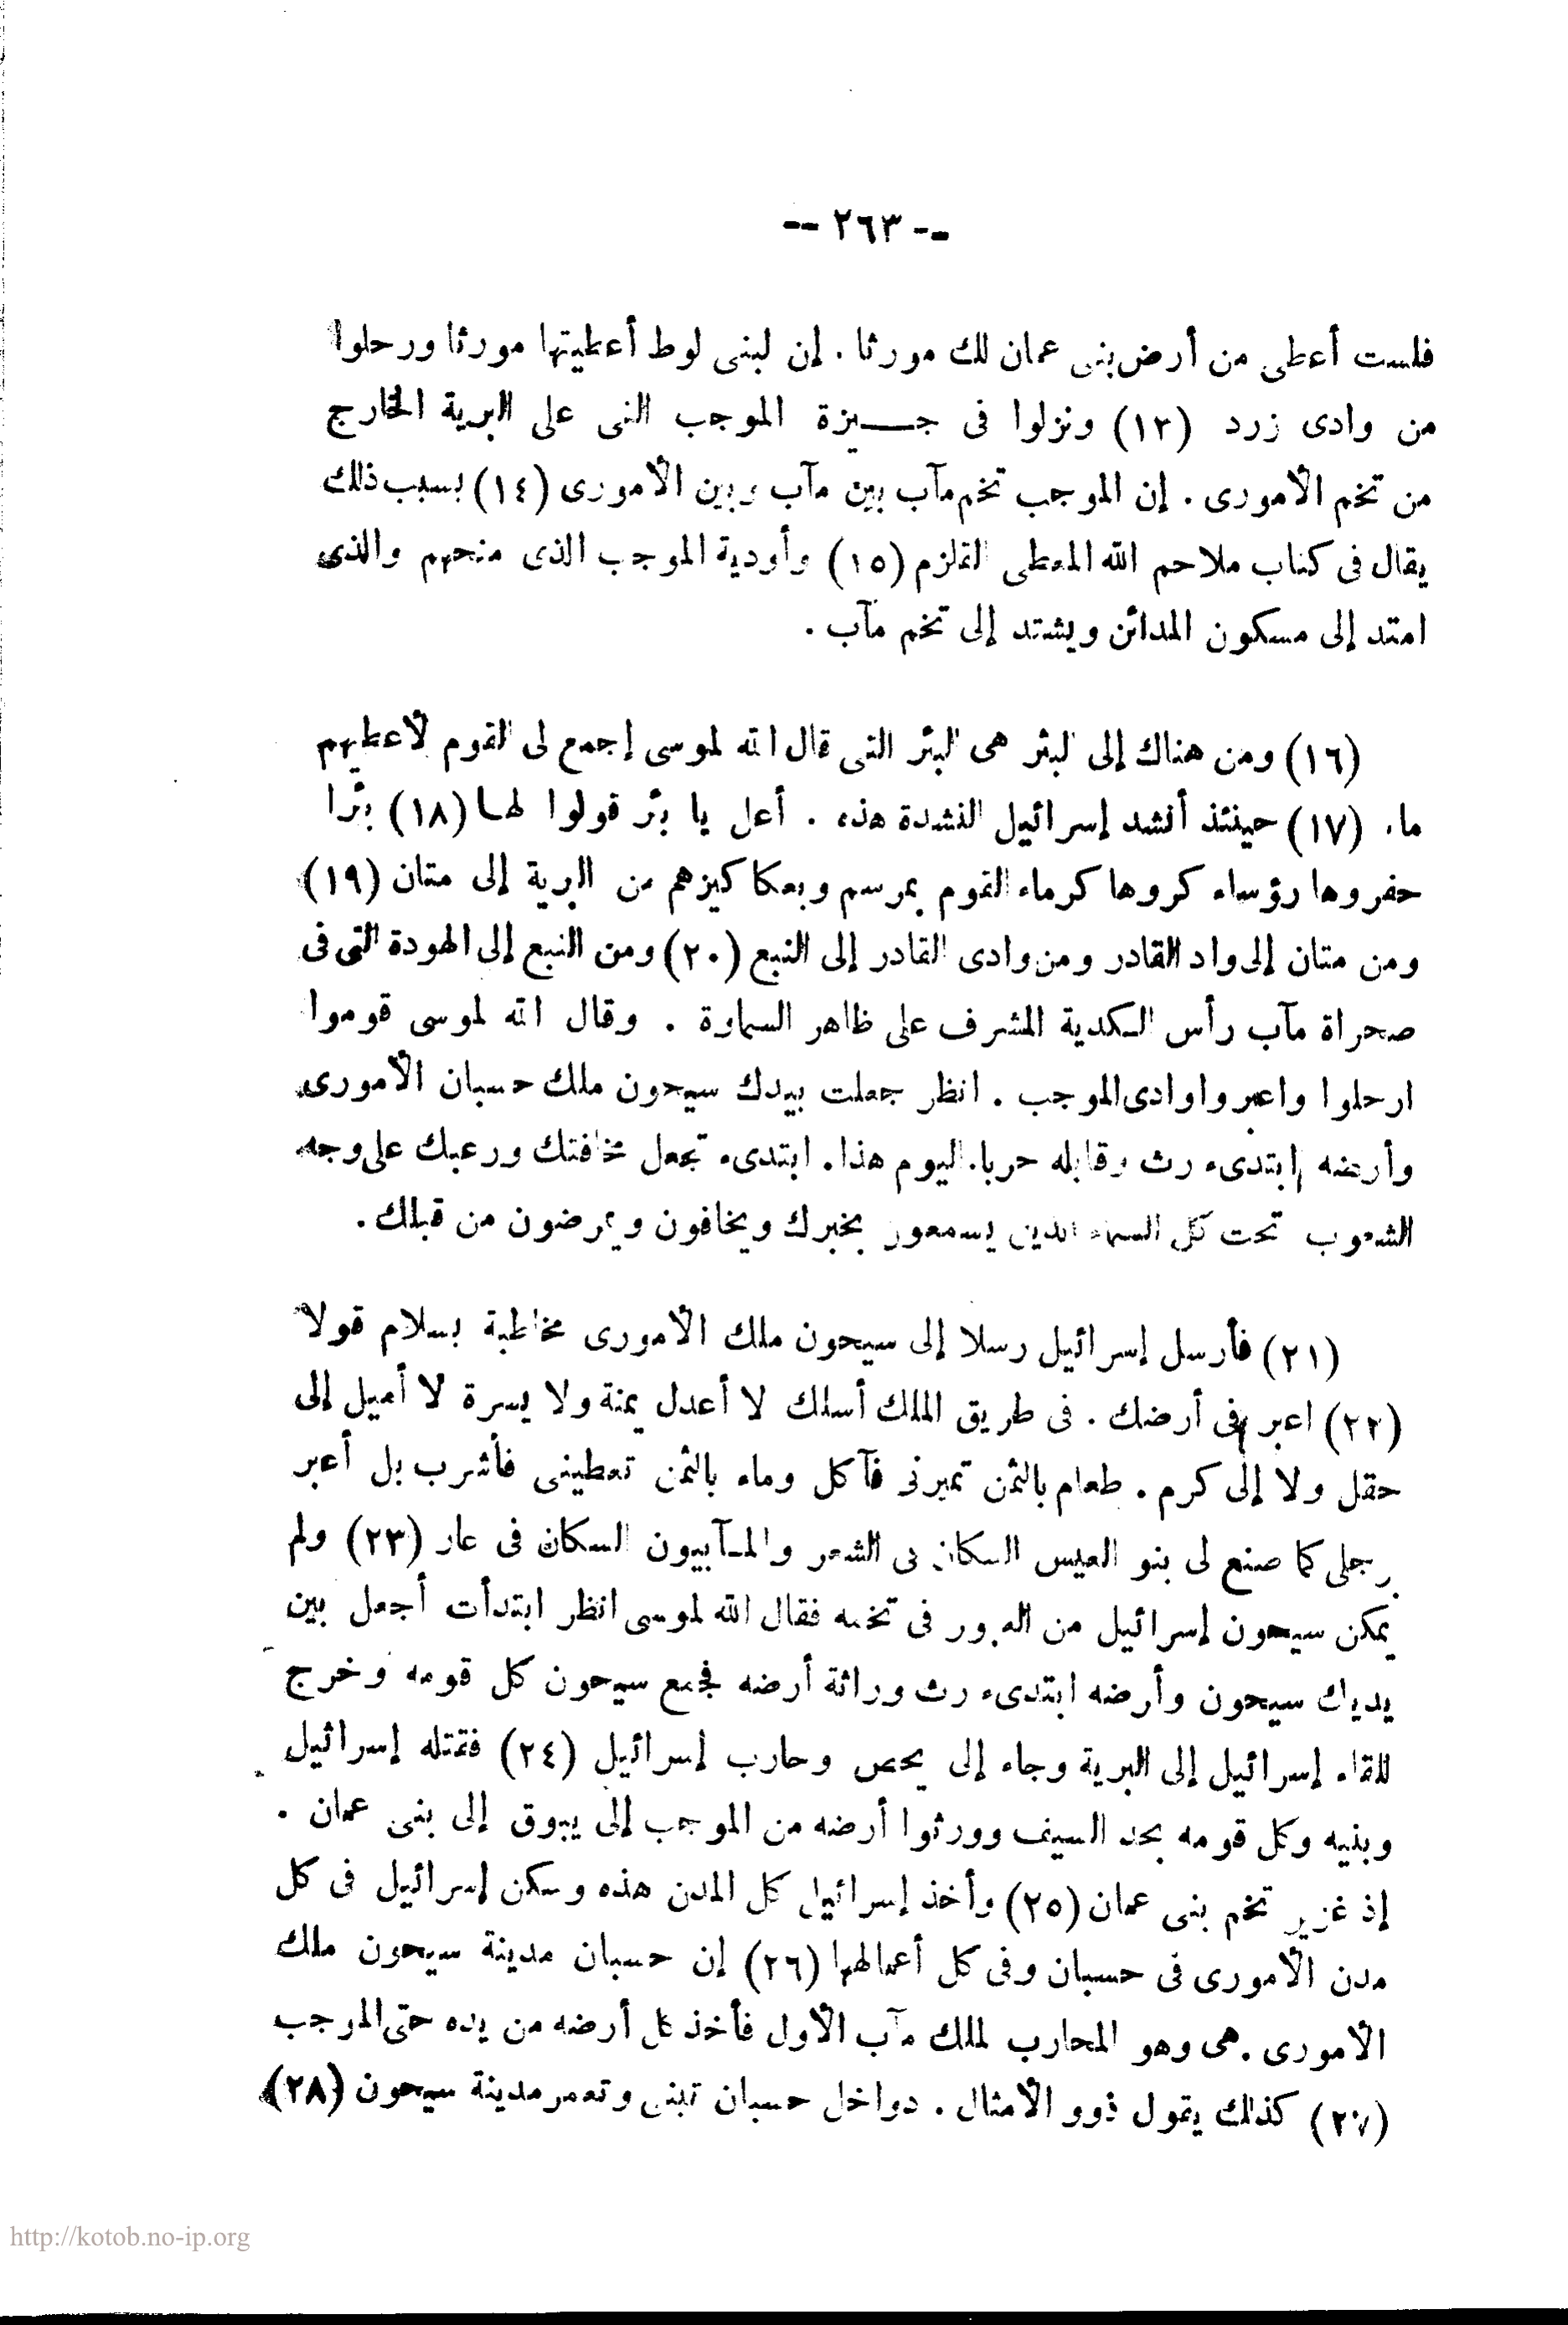 -- ٢٦٣ --
فلست أعطى من أرض بنى عمان لك مورثا . إن لبنى لوط أعطيتها مورثا ورحلوا
من وادى زرد (١٢) ونزلوا فى جـــيزة الموجب التى على البرية الخارج
من تخم الأمورى . إن الموجب تخم مآب بين مآب وبين الأمورى (١٤) بسبب ذلك
يقال فى كتاب ملاحم الله المعطى القلزم (١٥) وأودية الموجب الذى منحهم والذى
امتد إلى مسكون المدائن ويشتد إلى تخم مآب .
(١٦) ومن هناك إلى البئر هى البئر التى قال الله لموسى إجمع لى القوم لأعطيهم
ماء (١٧) حينئذ أنشد إسرائيل النشدة هذه . أعل يا بئر قولوا لها (١٨) بئرا
حفروها رؤساء كروها كرماء القوم بمرسم وبعكاكيزهم من البرية إلى متان (١٩)
ومن متان إلى واد القادر ومن وادى القادر إلى النبع (٢٠) ومن النبع إلى الهودة التى فى
صحراة مآب رأس الكدية المشرف على ظاهر السماوة . وقال الله لموسى قوموا
ارحلوا واعبروا وادى الموجب . انظر جعلت بيدك سيحون ملك حسبان الأمورى
وأرضه ابتدىء رث وقابله حربا. اليوم هذا. ابتدىء تجعل مخافتك ورعبك على وجه
الشعوب تحت كل السماء الذين يسمعون بخبرك ويخافون ويمرضون من قبلك .
(٢١) فأرسل إسرائيل رسلا إلى سيحون ملك الأمورى مخاطبة بسلام قولا
(٢٢) اعبر فى أرضك . فى طريق الملك أسلك لا أعدل يمنة ولا يسرة لا أميل إلى
حقل ولا إلى كرم . طعام بالثمن تميرنى فآكل وماء بالثمن تعطينى فأشرب بل أعبر
برجلى كما صنع لى بنو العيس السكان فى الشعر والمـآبيون السكان فى عار (٢٣) ولم
يمكن سيحون إسرائيل من العبور فى تخمه فقال الله لموسى انظر ابتدأت أجعل بين
يديك سيحون وأرضه ابتدىء رث وراثة أرضه فجمع سيحون كل قومه وخرج
للقاء إسرائيل إلى البرية وجاء إلى يحص وحارب إسرائيل (٢٤) فقتله إسرائيل
وبنيه وكل قومه بحد السيف وورثوا أرضه من الموجب إلى يبوق إلى بنى عمان .
إذ غزير تخم بنى عمان (٢٥) وأخذ إسرائيل كل المدن هذه وسكن إسرائيل فى كل
مدن الأمورى فى حسبان وفى كل أعمالها (٢٦) إن حسبان مدينة سيحون ملك
الأمورى . هى وهو المحارب لملك مآب الأول فأخذ كل أرضه من يده حتى الموجب
(٢٧) كذلك يقول ذوو الأمثال . دواخل حسبان تبنى وتعمر مدينة سيحون (٢٨)
http://kotob.no-ip.org